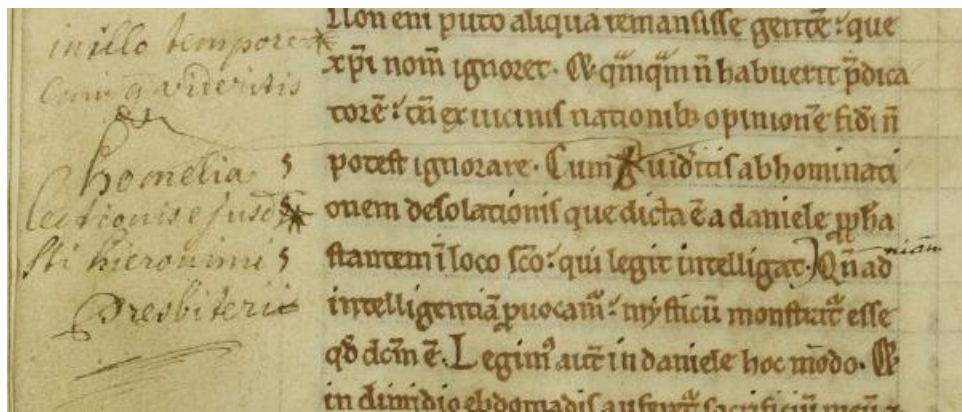 in illo tempore
cum g videritis
&
homelia
lectionis ejusdem
sti hieronimi
presbiterii
Non eni puto aliqua remansisse gentē: que
xp̄i nom̄ ignoret. Et qm̄qm̄ n̄ habuerit p̄dica
torē: tn̄ ex uicinis nationib; opinionē fidi n̄
potest ignorare. Cum g uiditis abhominati
onem desolationis que dicta ē a daniele ꝓpha
stantem ī loco sc̄o: qui legit intelligat. Qn̄ ad
niam
intelligentiā ꝓuocam̄: mysticū monstrat esse
qd̄ dcm̄ ē. Legim⁹ aut̄ in daniele hoc m̄odo. Et
in dimidio ebdomadis auferet᷑ sacrificiū meū